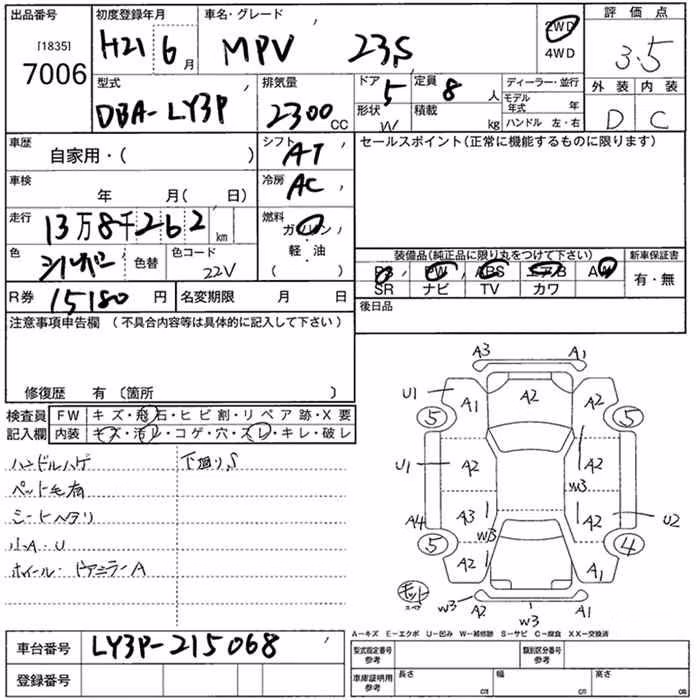 出品番号
[1835]
7006
初度登録年月
H21 6月
車名・グレード
MPV 23S
2WD
4WD
評価点
3.5
型式
DBA-LY3P
排気量
2300CC
ドア
5
定員
8人
形状
W
積載
kg
ディーラー・並行
モデル年式 年
ハンドル 左・右
外装 内装
D C
車歴
自家用・( )
シフト
AT
セールスポイント(正常に機能するものに限ります)
車検
年 月( 日)
冷房
AC
走行
13万8千262km
燃料
ガソリン・軽・油
( )
色
シルバー
色替
色コード
22V
装備品(純正品に限り丸をつけて下さい)
新車保証書
PS PW ABS エアB AW
有・無
SR ナビ TV カワ
R券 15180円
名変期限 月 日
後日品
注意事項申告欄(不具合内容等は具体的に記入して下さい)
修復歴 有〔箇所 〕
検査員記入欄
FW キズ・飛石・ヒビ割・リペア跡・X要
内装 キズ・汚レ・コゲ・穴・スレ・キレ・破レ
ハンドルハゲ
下廻りS
ペット毛有
シートヘタリ
小A・U
ホイール・ドアミラーA
A3 A1
U1 A1 A2 A1
5 5
U1 A2 A2
W3
A4 A3 A2 U2
W3
5 4
A2 A1
W3 A2 W3 A1
A-キズ E-エクボ U-凹み W-補修跡 S-サビ C-腐食 XX-交換済
車台番号
LY3P-215068
登録番号
型式指定番号 参考
類別区分番号 参考
車庫証明用 参考
長さ cm
幅 cm
高さ cm